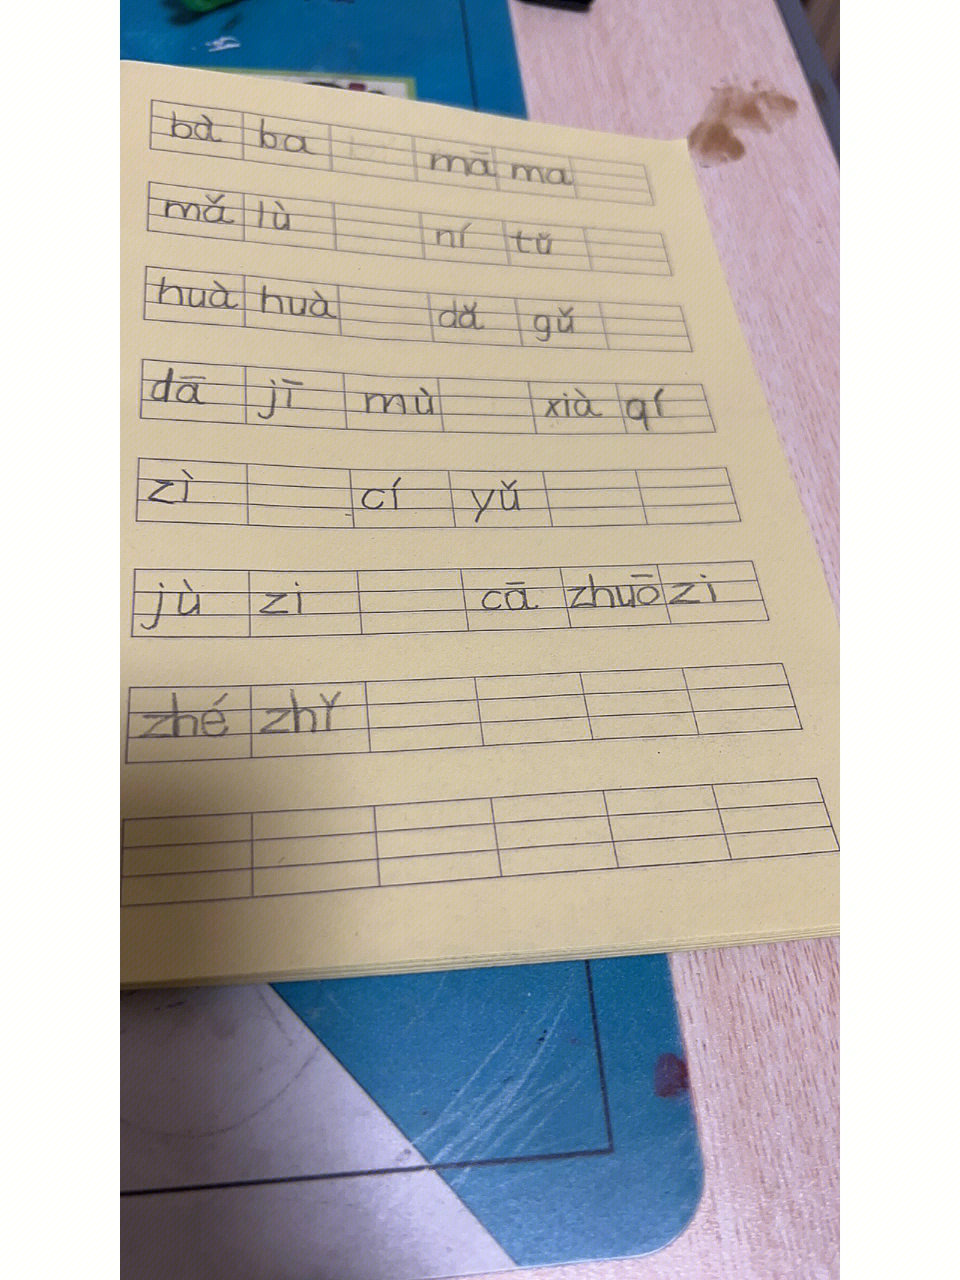 bà ba mā ma
mǎ lù ní tǔ
huà huà dǎ gǔ
dā jī mù xià qí
zì cí yǔ
jù zi cā zhuō zi
zhé zhǐ